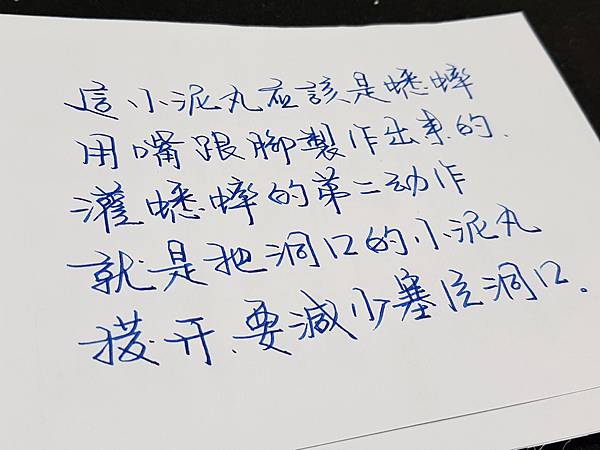 這小泥丸应該是蟋蟀
用嘴跟腳製作出来的.
灌蟋蟀的第二动作
就是把洞口的小泥丸
拨开.要減少塞住洞口.